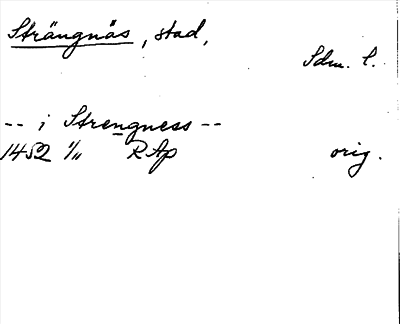 Strängnäs, stad,
Sdm. l.
-- i Strengness --
1452 1/11 RAp orig.